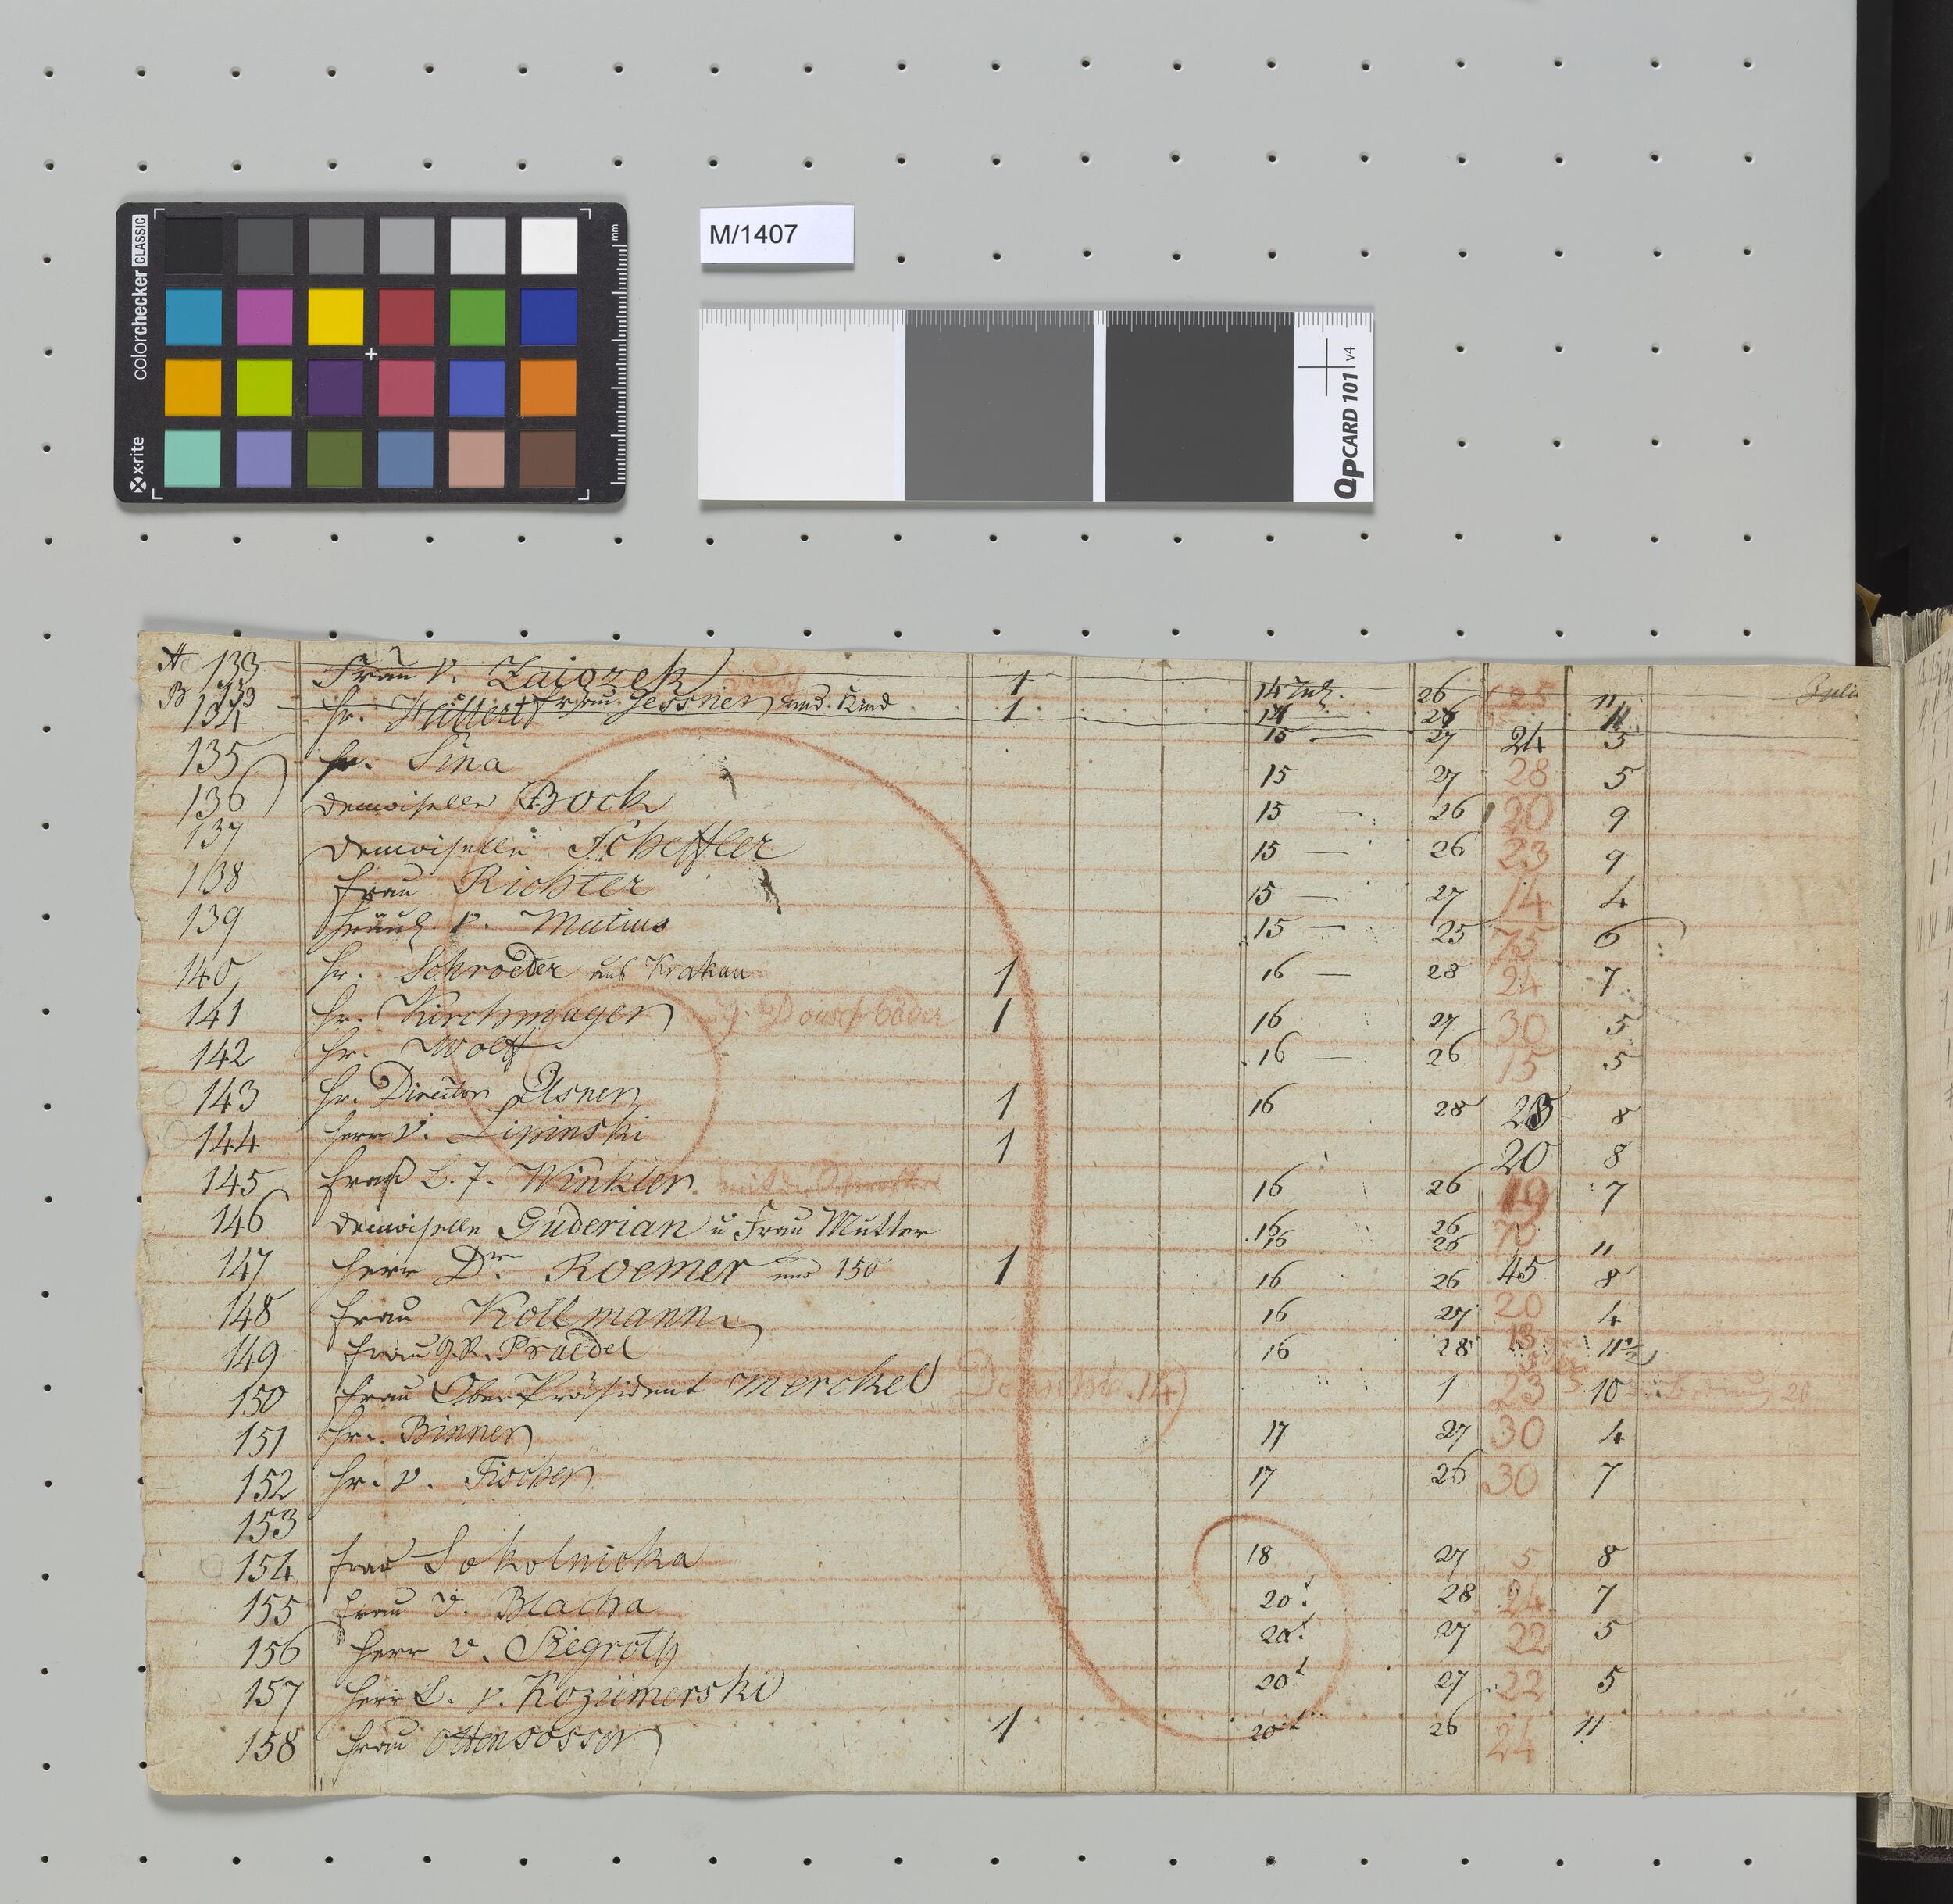 colorchecker CLASSIC
x-rite
mm
M/1407
QPCARD 101 v4
A 133 Frau v. Zaiozek 1 14 July. 26 25 11
B 133 Frau Jessner und Kind 1 14 — 26 11
134 hr. 15 — 27 24 5
135 hr. Sina 15 27 28 5
136 Demoiselle Bock 15 — 26 20 9
137 Demoiselle Scheffler 15 — 26 23 9
138 Frau Richter 15 — 27 14 4
139 Fräul. v. Mutius 15 — 25 75 6
140 hr. Schroeder aus Krakau 1 16 — 28 24 7
141 hr. Kirchmayer 1 16 27 30 5
142 hr. Wolff 16 — 26 15 5
143 hr. Director Elsner 1 16 28 8
144 herr v. Lipinski 1 20 8
145 Frau L. J. Winkler 16 26 19 7
146 Demoiselle Guderian u Frau Mutter 16 26 70
16 26 11
147 Herr Dr. Roemer und 150 1 16 26 45 8
148 Frau Kollmann 16 27 20 4
149 Frau G.R. Praedel 16 28 13 11½
150 Frau Ober Präsident Merckel 1 23 10
151 hr. Binner 17 27 30 4
152 hr. v. Fischer 17 26 30 7
153
154 Frau Sokolnicka 18 27 5 8
155 Frau v. Blacha 20. 28 24 7
156 Herr v. Siegroth 20. 27 22 5
157 Herr L. v. Kozümerski 20 27 22 5
158 Frau Ottensosser 1 20 26 24 11